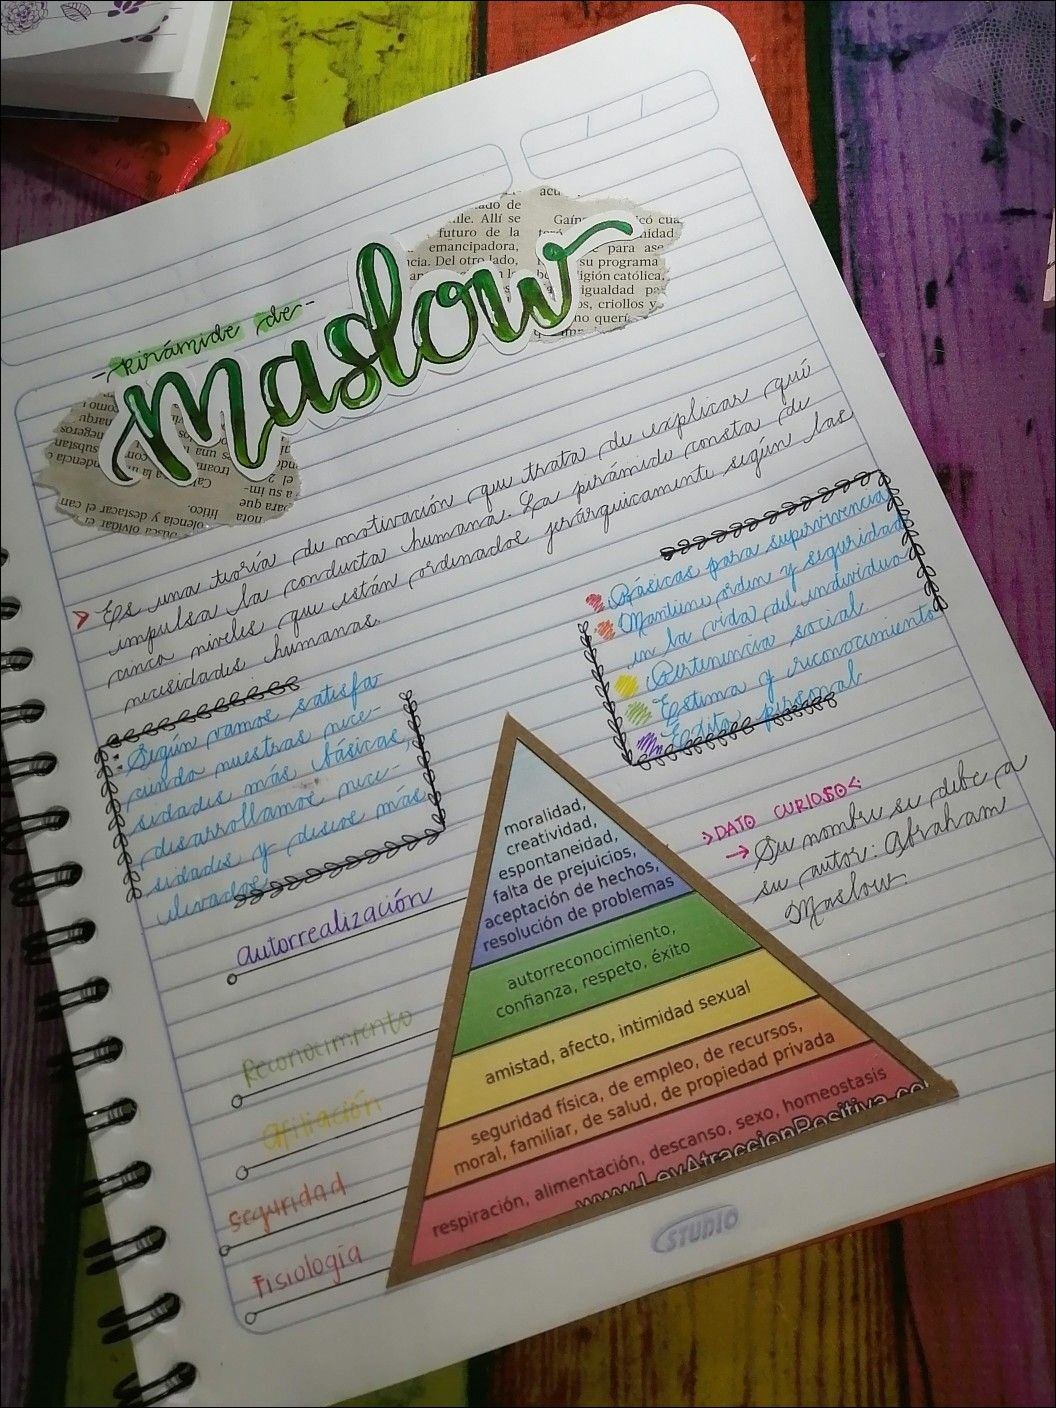 -pirámide de-
Maslow
ado de
lle. Allí se
futuro de la
emancipadora,
cia. Del otro lado,
acu
Gaín
icó cua
nidad
para ase
su programa
ligión católica,
igualdad pa
os, criollos y
no querí
Es una teoría de motivación que trata de explicar qué
impulsa la conducta humana. La pirámide consta de
cinco niveles que están ordenados jerárquicamente según las
necesidades humanas.
Básicas para supervivencia
Mantiene orden y seguridad
en la vida del individuo
Pertenencia social
Estima y reconocimiento
Éxito personal
Según vamos satisfa
ciendo nuestras nece-
sidades más básicas,
desarrollamos nece-
sidades y deseos más
elevados
>DATO CURIOSO<
→ Su nombre se debe a
su autor: Abraham
Maslow.
autorrealización
Reconocimiento
afiliación
seguridad
Fisiología
moralidad,
creatividad,
espontaneidad,
falta de prejuicios,
aceptación de hechos,
resolución de problemas
autorreconocimiento,
confianza, respeto, éxito
amistad, afecto, intimidad sexual
seguridad física, de empleo, de recursos,
moral, familiar, de salud, de propiedad privada
respiración, alimentación, descanso, sexo, homeostasis
www.LeyAtraccionPositiva.co
STUDIO